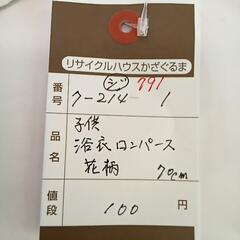 リサイクルハウスかざぐるま
シジ 791
番号 7-214-1
品名 子供
浴衣ロンパース
花柄 70cm
値段 100 円